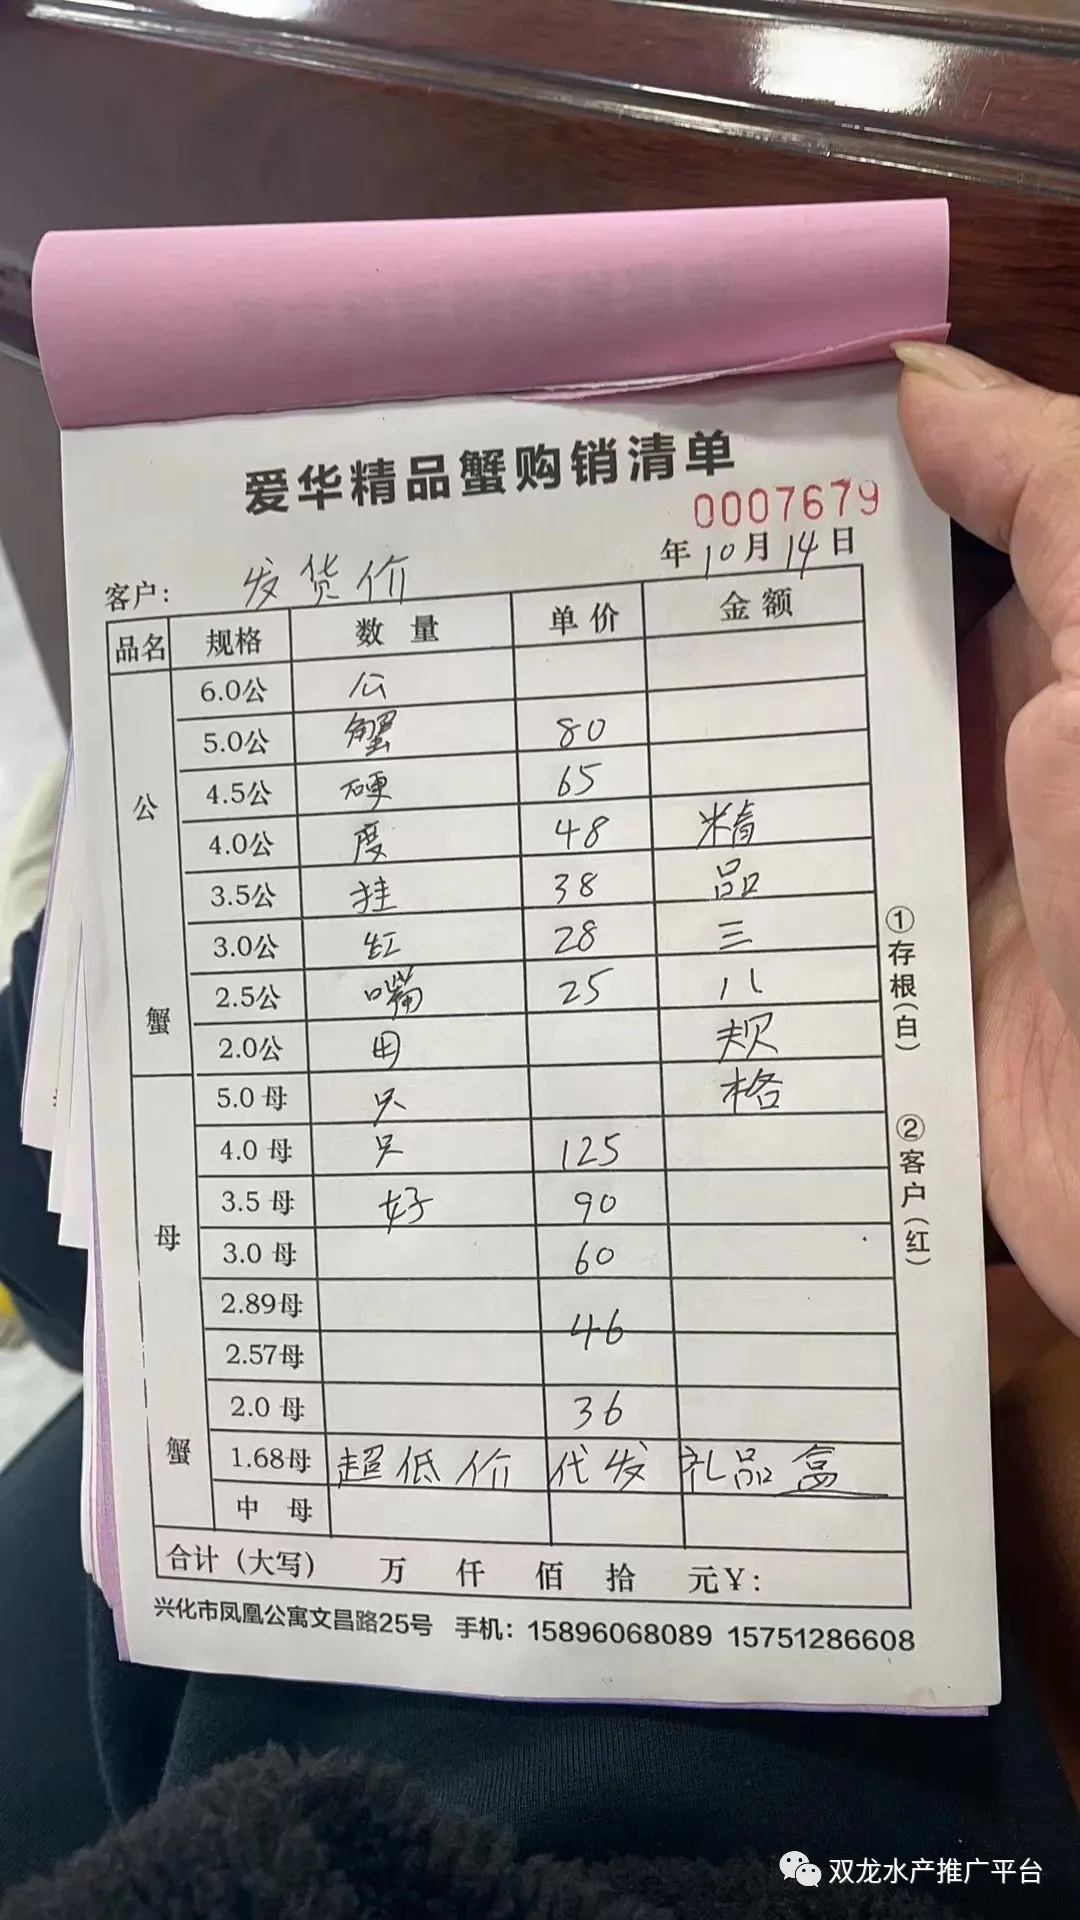 爱华精品蟹购销清单
0007679
年10月14日
客户: 发货价
品名 规格 数量 单价 金额
公蟹
6.0公 公
5.0公 蟹 80
4.5公 硬 65
4.0公 度 48 精
3.5公 挂 38 品
3.0公 缸 28 三
2.5公 嘴 25 八
2.0公 田 规
母蟹
5.0母 只 格
4.0母 只 125
3.5母 好 90
3.0母 60
2.89母 46
2.57母
2.0母 36
1.68母 超低价 代发 礼品盒
中母
合计(大写) 万 仟 佰 拾 元¥:
兴化市凤凰公寓文昌路25号 手机: 15896068089 15751286608
①存根(白)
②客户(红)
双龙水产推广平台